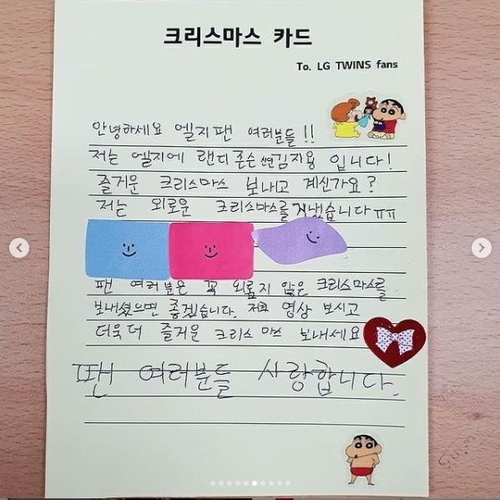 크리스마스 카드
To. LG TWINS fans
안녕하세요 엘지팬 여러분들!!
저는 엘지에 랜디존슨 김지용 입니다!
즐거운 크리스마스 보내고 계신가요?
저는 외로운 크리스마스를 지냈습니다ㅠㅠ
팬 여러분은 꼭 외롭지 않은 크리스마스를
보내셨으면 좋겠습니다. 저희 영상 보시고
더욱더 즐거운 크리스마스 보내세요
팬 여러분들 사랑합니다.